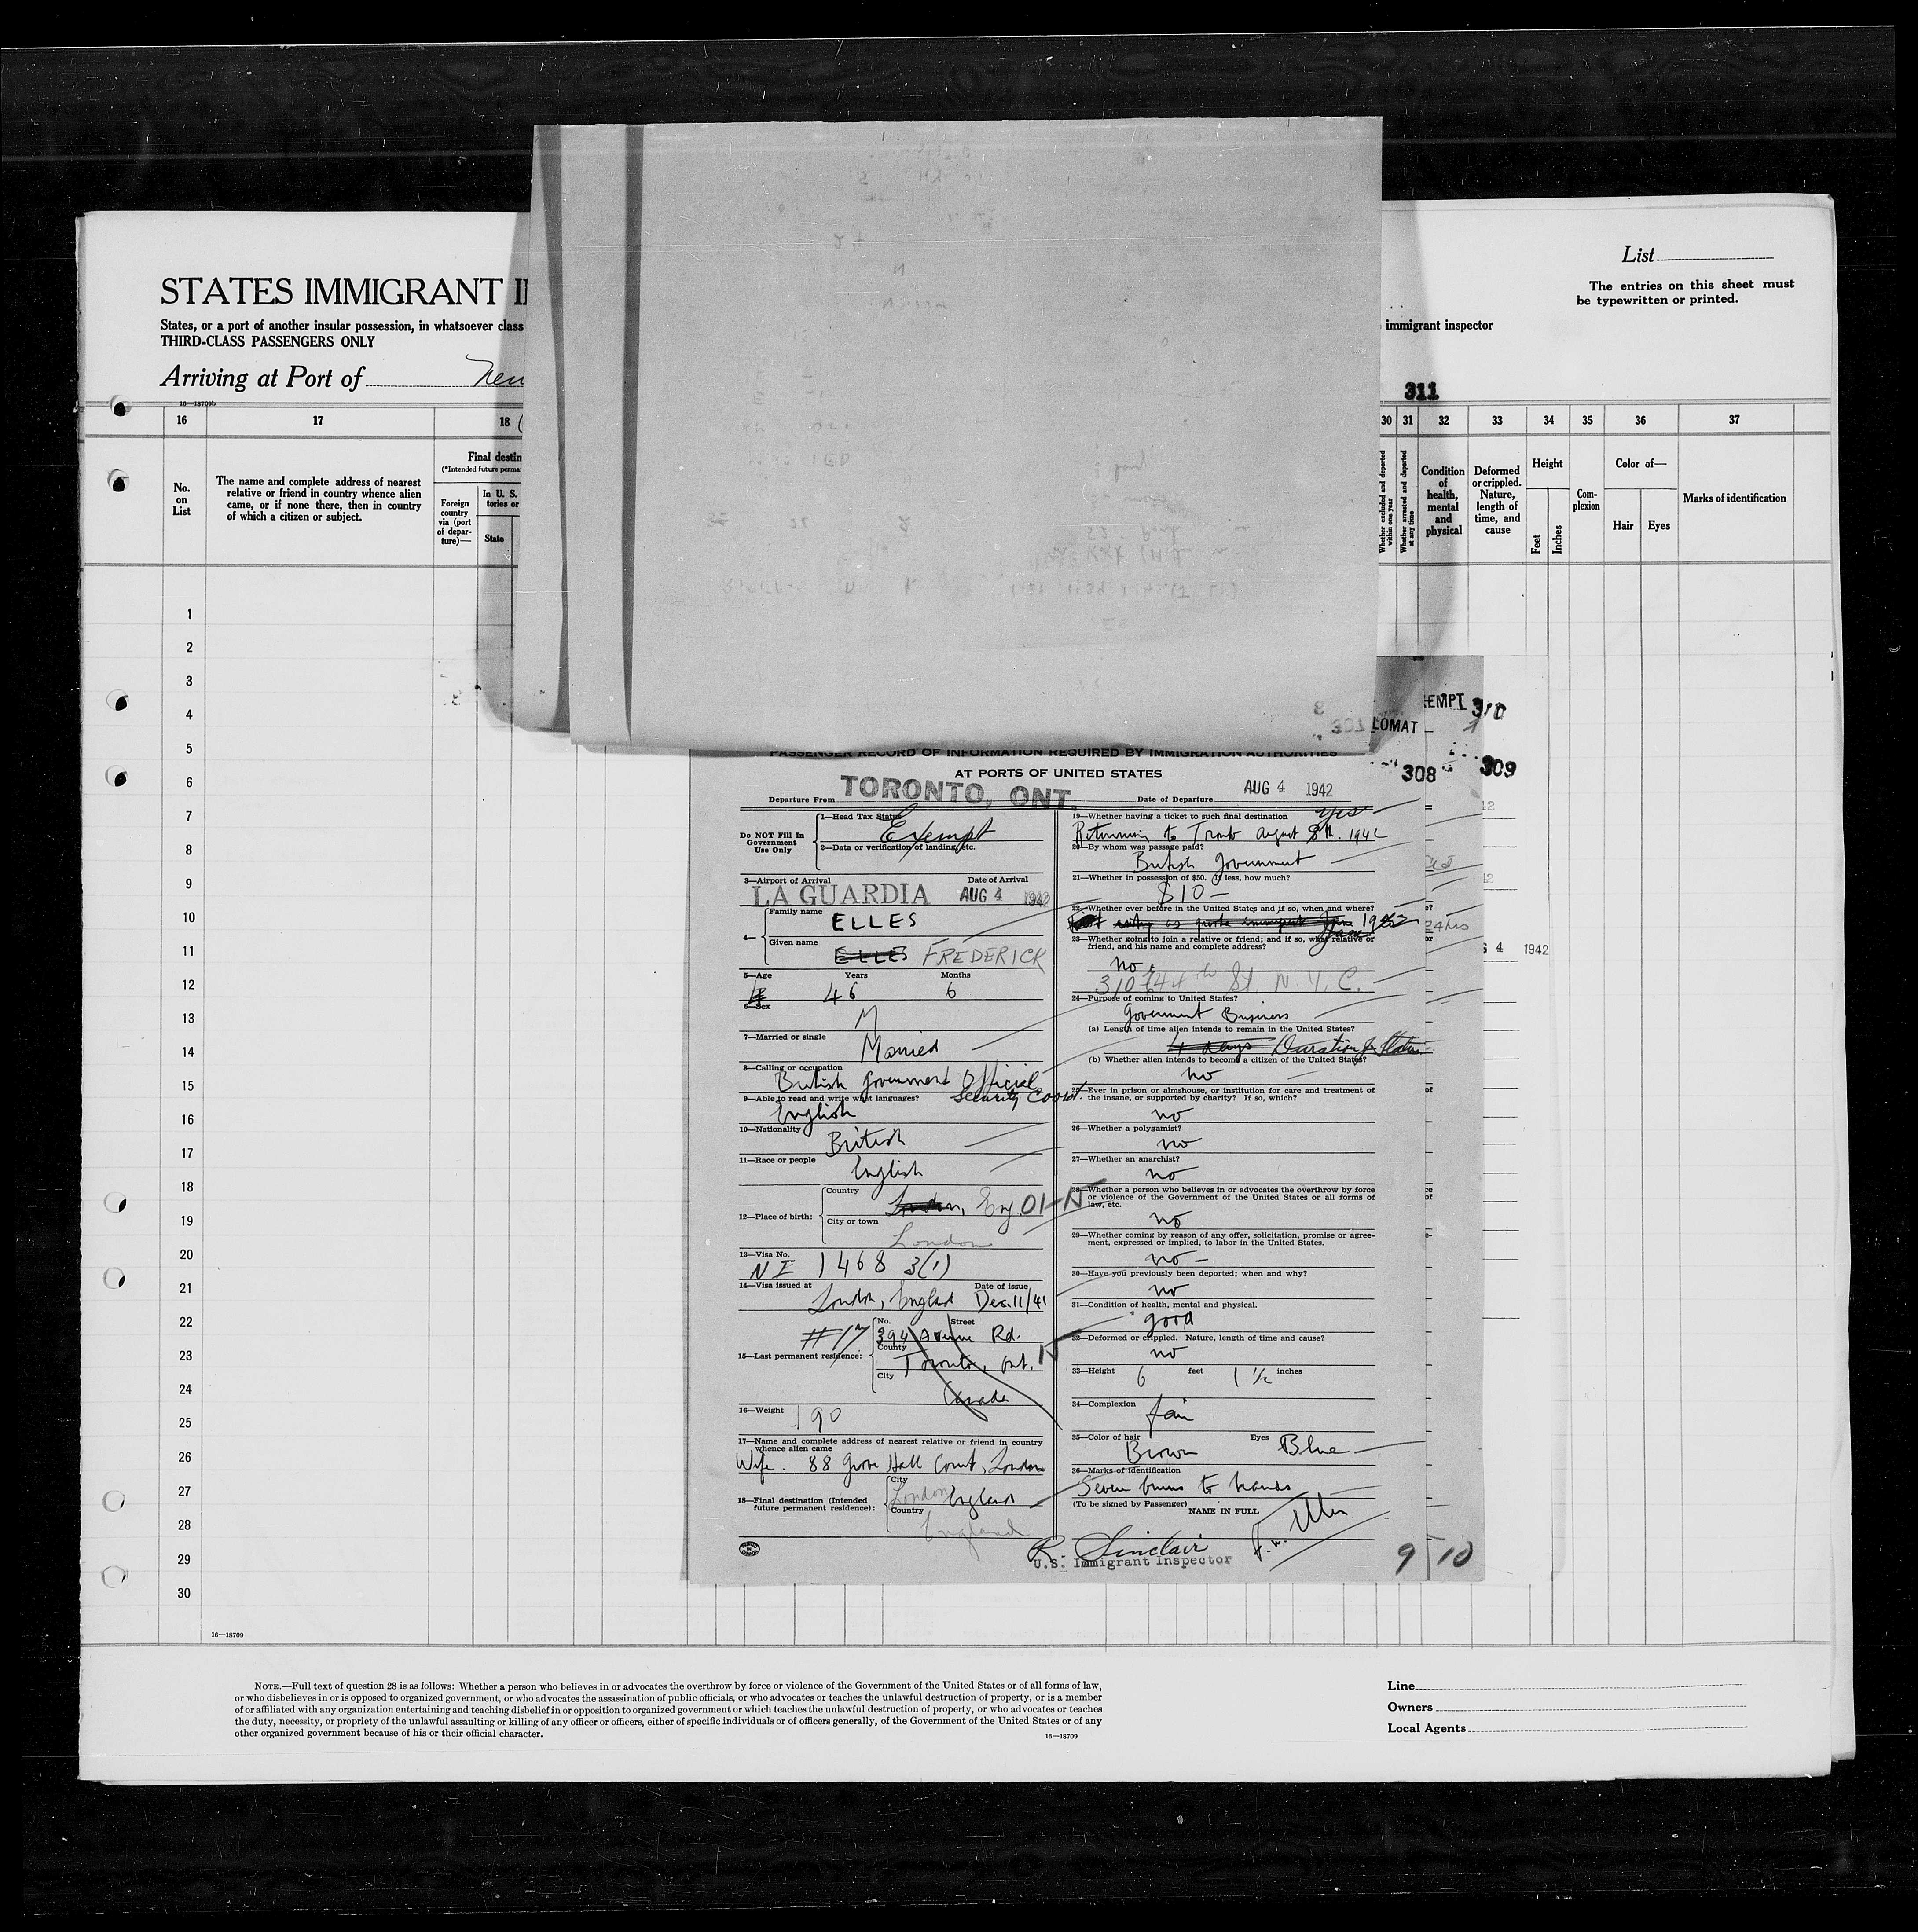 List
The entries on this sheet must
be typewritten or printed.
STATES IMMIGRANT
States, or a port of another insular possession, in whatsoever class
immigrant inspector
THIRD-CLASS PASSENGERS ONLY
Arriving at Port of New
311
16—18709b
16 17 18 30 31 32 33 34 35 36 37
No.
on
List
The name and complete address of nearest
relative or friend in country whence alien
came, or if none there, then in country
of which a citizen or subject.
Final destin
(*Intended future perma
Foreign
country
via (port
of depar-
ture)—
In U. S.
tories or
State
Whether excluded and deported
within one year
Whether arrested and deported
at any time
Condition
of
health,
mental
and
physical
Deformed
or crippled.
Nature,
length of
time, and
cause
Height
Feet
Inches
Com-
plexion
Color of—
Hair
Eyes
Marks of identification
1
2
3
4
5
6
7
8
9
10
11
12
13
14
15
16
17
18
19
20
21
22
23
24
25
26
27
28
29
30
EMPT 310
LOMAT
308 309
PASSENGER RECORD OF INFORMATION REQUIRED BY IMMIGRATION AUTHORITIES
AT PORTS OF UNITED STATES
Departure From TORONTO, ONT.
Date of Departure AUG 4 1942
Do NOT Fill In
Government
Use Only
1—Head Tax Status
Exempt
2—Data or verification of landing, etc.
3—Airport of Arrival
Date of Arrival
LA GUARDIA AUG 4 1942
4—
Family name
ELLES
Given name
ELLES FREDERICK
5—Age Years Months
46 6
6—Sex
M
7—Married or single
Married
8—Calling or occupation
British Government Official
Security Coord.
9—Able to read and write what languages?
English
10—Nationality
British
11—Race or people
English
12—Place of birth:
Country
London, Eng. 01-N
City or town
London
13—Visa No.
NI 1468 3(1)
14—Visa issued at Date of issue
London, England Dec. 11/41
15—Last permanent residence:
#17
No. Street
394 Avenue Rd.
County
Toronto, Ont.
City
Canada
16—Weight
190
17—Name and complete address of nearest relative or friend in country
whence alien came
Wife. 88 Grove Hall Court, London
18—Final destination (Intended
future permanent residence):
City
London England
Country
England
19—Whether having a ticket to such final destination
yes
Returning to Toronto August 8th. 1942
20—By whom was passage paid?
British Government
21—Whether in possession of $50. If less, how much?
$10 -
22—Whether ever before in the United States and if so, when and where?
June 1942
23—Whether going to join a relative or friend; and if so, what relative or
friend, and his name and complete address?
no.
310 E 44th St. N. Y. C.
24—Purpose of coming to United States?
Government Business
(a) Length of time alien intends to remain in the United States?
4 days Duration of Status
(b) Whether alien intends to become a citizen of the United States?
no
25—Ever in prison or almshouse, or institution for care and treatment of
the insane, or supported by charity? If so, which?
no
26—Whether a polygamist?
no
27—Whether an anarchist?
no
28—Whether a person who believes in or advocates the overthrow by force
or violence of the Government of the United States or all forms of
law, etc.
no
29—Whether coming by reason of any offer, solicitation, promise or agree-
ment, expressed or implied, to labor in the United States.
no -
30—Have you previously been deported; when and why?
no
31—Condition of health, mental and physical.
good
32—Deformed or crippled. Nature, length of time and cause?
no
33—Height 6 feet 1 1/2 inches
34—Complexion
fair
35—Color of hair Eyes
Brown Blue
36—Marks of identification
Severe burns to hands
(To be signed by Passenger)
NAME IN FULL
F. W. Elles
R. Sinclair
U.S. Immigrant Inspector
24 hrs
4 1942
9 10
16—18709
NOTE.—Full text of question 28 is as follows: Whether a person who believes in or advocates the overthrow by force or violence of the Government of the United States or of all forms of law,
or who disbelieves in or is opposed to organized government, or who advocates the assassination of public officials, or who advocates or teaches the unlawful destruction of property, or is a member
of or affiliated with any organization entertaining and teaching disbelief in or opposition to organized government or which teaches the unlawful destruction of property, or who advocates or teaches
the duty, necessity, or propriety of the unlawful assaulting or killing of any officer or officers, either of specific individuals or of officers generally, of the Government of the United States or of any
other organized government because of his or their official character.
16—18709
Line
Owners
Local Agents